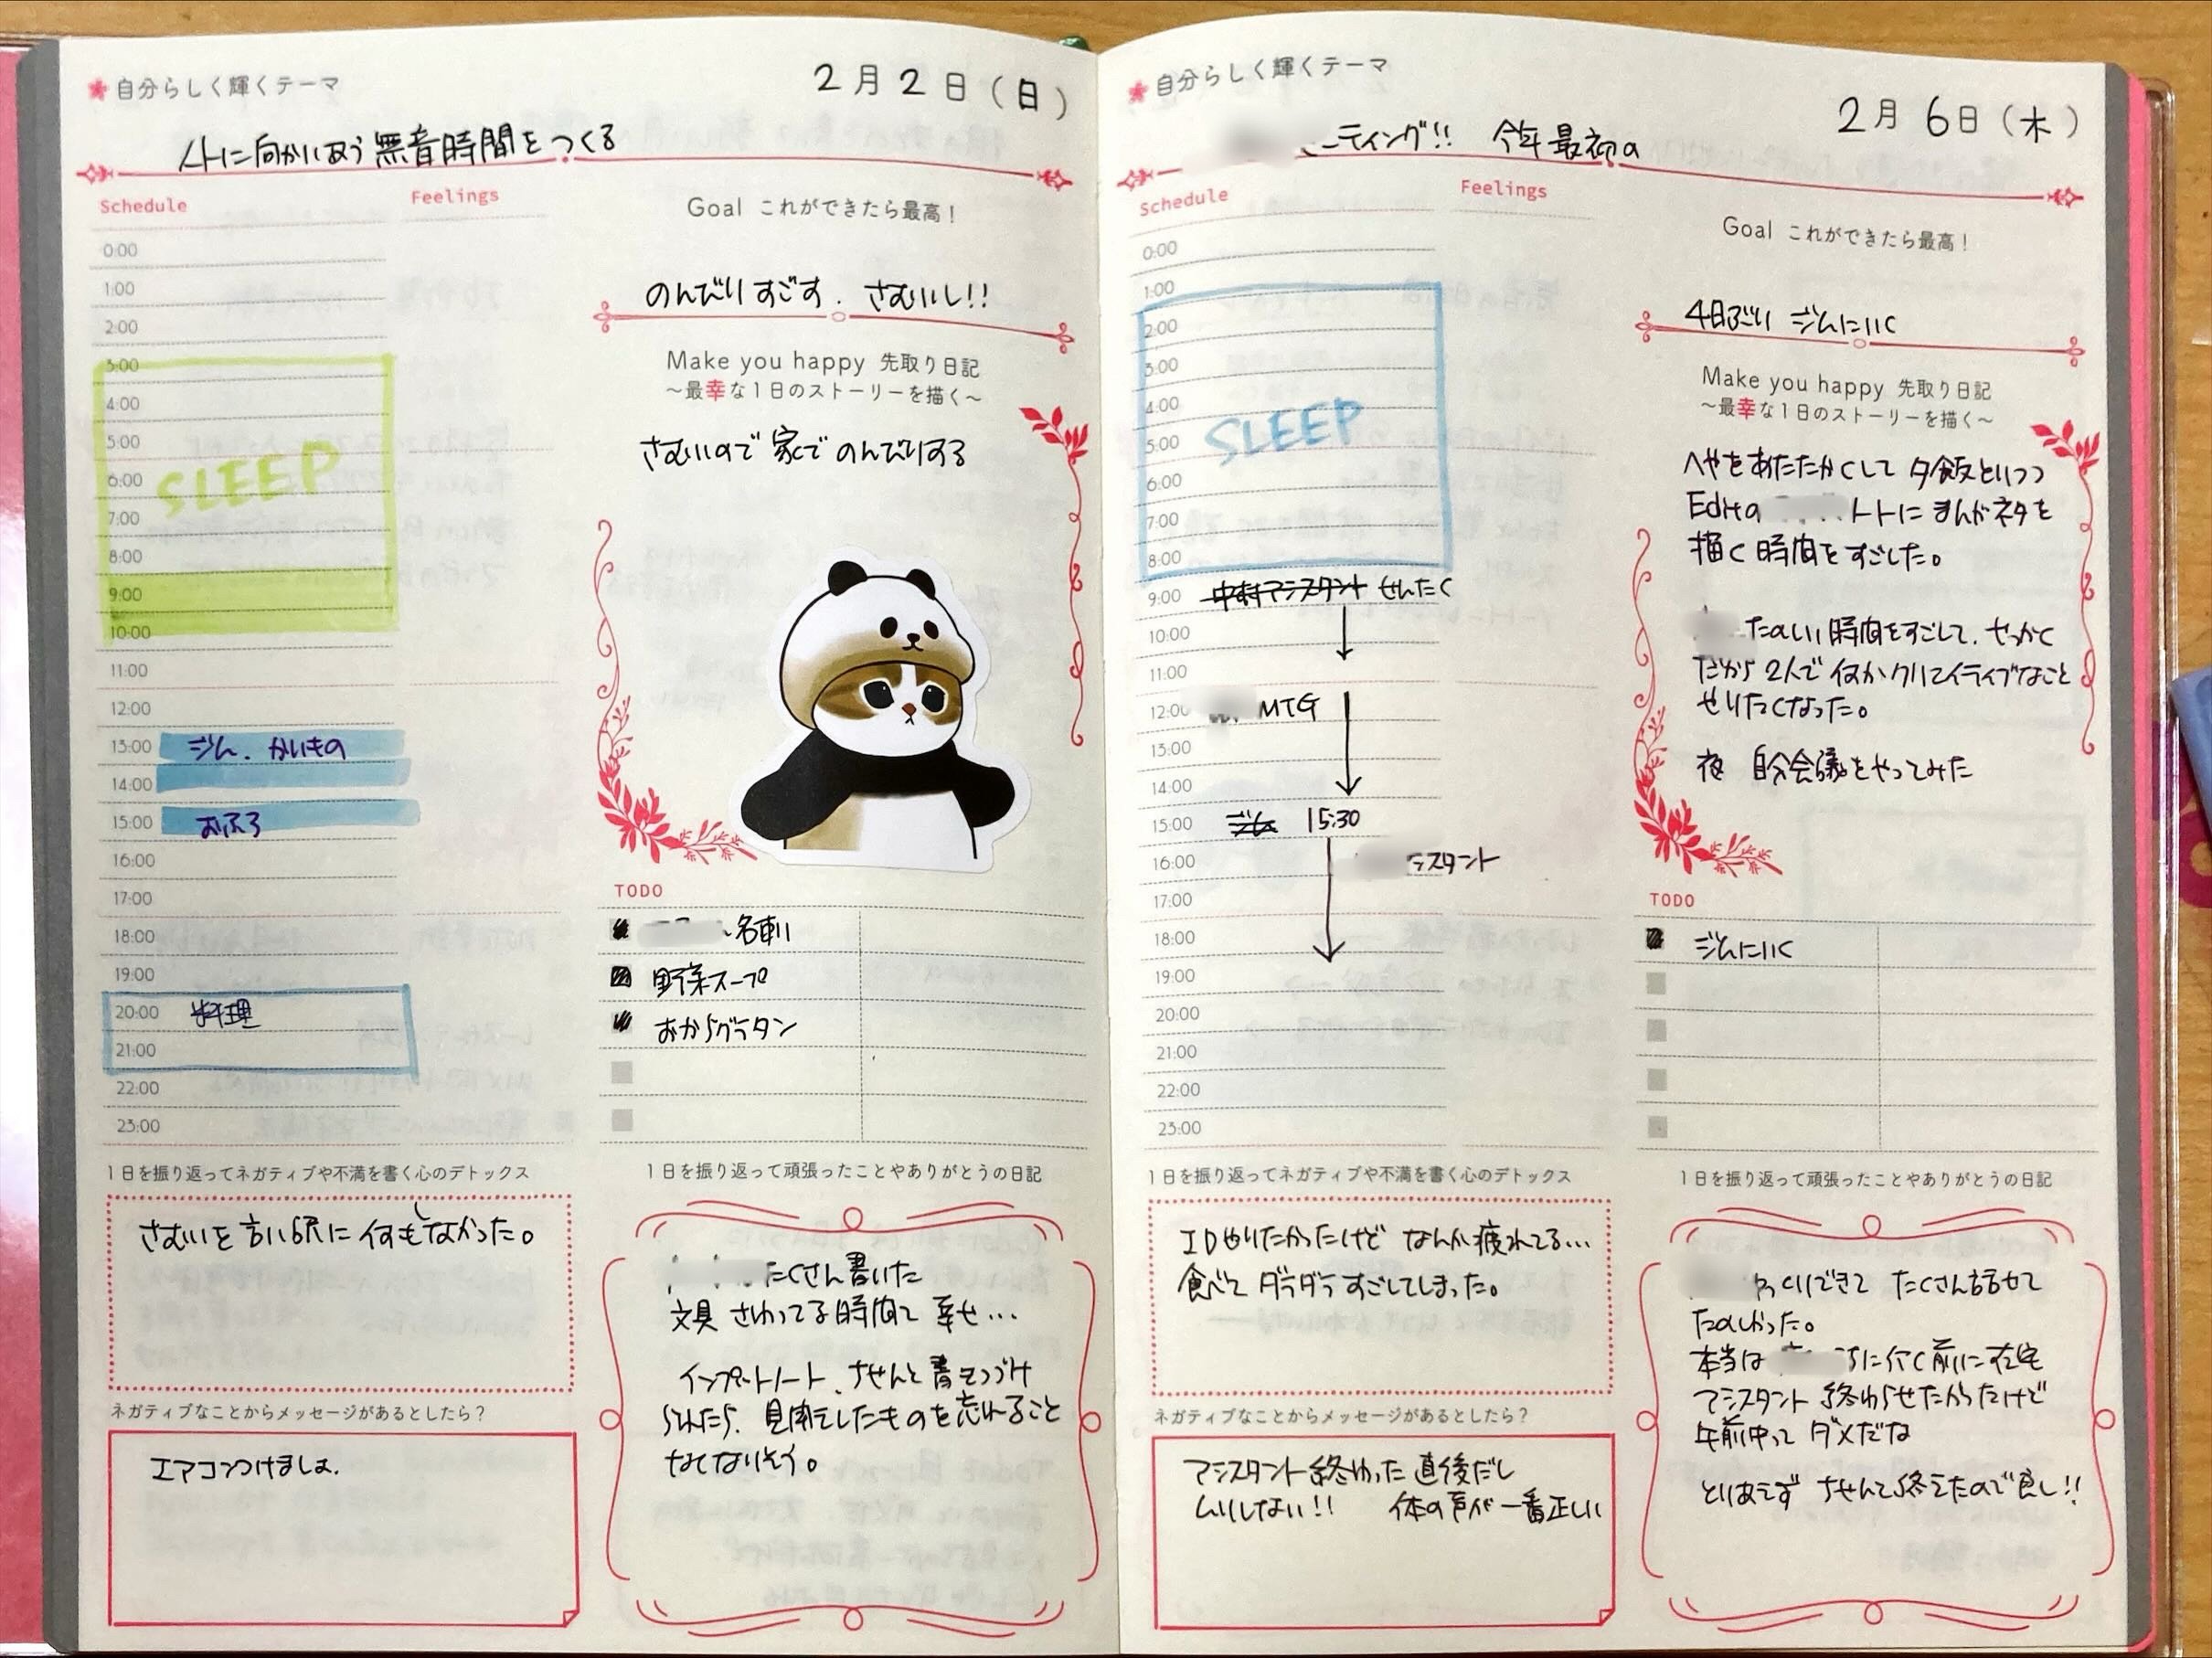 自分らしく輝くテーマ
2月2日(日)
に向かいあう無音時間をつくる
Schedule
Feelings
0:00
1:00
2:00
3:00
4:00
5:00
6:00
7:00
8:00
9:00
10:00
SLEEP
11:00
12:00
13:00 ジム. かいもの
14:00
15:00 おふろ
16:00
17:00
18:00
19:00
20:00 料理
21:00
22:00
23:00
Goal これができたら最高!
のんびりすごす. さむいし!!
Make you happy 先取り日記
~最幸な1日のストーリーを描く~
さむいので 家で のんびりする
TODO
名刺
野菜スープ
おからグラタン
1日を振り返ってネガティブや不満を書く心のデトックス
さむいを言い訳に何もしなかった。
ネガティブなことからメッセージがあるとしたら?
エアコンつけましょ.
1日を振り返って頑張ったことやありがとうの日記
たくさん書いた
文具 さわってる時間って 幸せ…
インプットノート、ちゃんと書きつづけ
られたら、見聞きしたものを忘れること
なくなりそう。
自分らしく輝くテーマ
2月6日(木)
ーティング!! 今年最初の
Schedule
Feelings
0:00
1:00
2:00
3:00
4:00
5:00
6:00
7:00
8:00
SLEEP
9:00 アシスタント せんたく
10:00
11:00
12:00 MTG
13:00
14:00
15:00 ジム 15:30
16:00 シスタント
17:00
18:00
19:00
20:00
21:00
22:00
23:00
Goal これができたら最高!
4日ぶり ジムにいく
Make you happy 先取り日記
~最幸な1日のストーリーを描く~
へやをあたたかくして 夕飯といつつ
Editの トに まんがネタを
描く時間をすごした。
たのしい時間をすごして、せっかく
だから 2人で 何かクリエイティブなこと
もしたくなった。
夜 自分会議をやってみた
TODO
ジムにいく
1日を振り返ってネガティブや不満を書く心のデトックス
やりたかったけど なんか疲れてる…
食べて ダラダラすごしてしまった。
ネガティブなことからメッセージがあるとしたら?
アシスタント終わった直後だし
ムリしない!! 体の声が一番正しい
1日を振り返って頑張ったことやありがとうの日記
できて たくさん話せて
たのしかった。
本当は に行く前に在宅
アシスタント 終わらせたかったけど
午前中って ダメだな
とりあえず ちゃんと終えたので良し!!